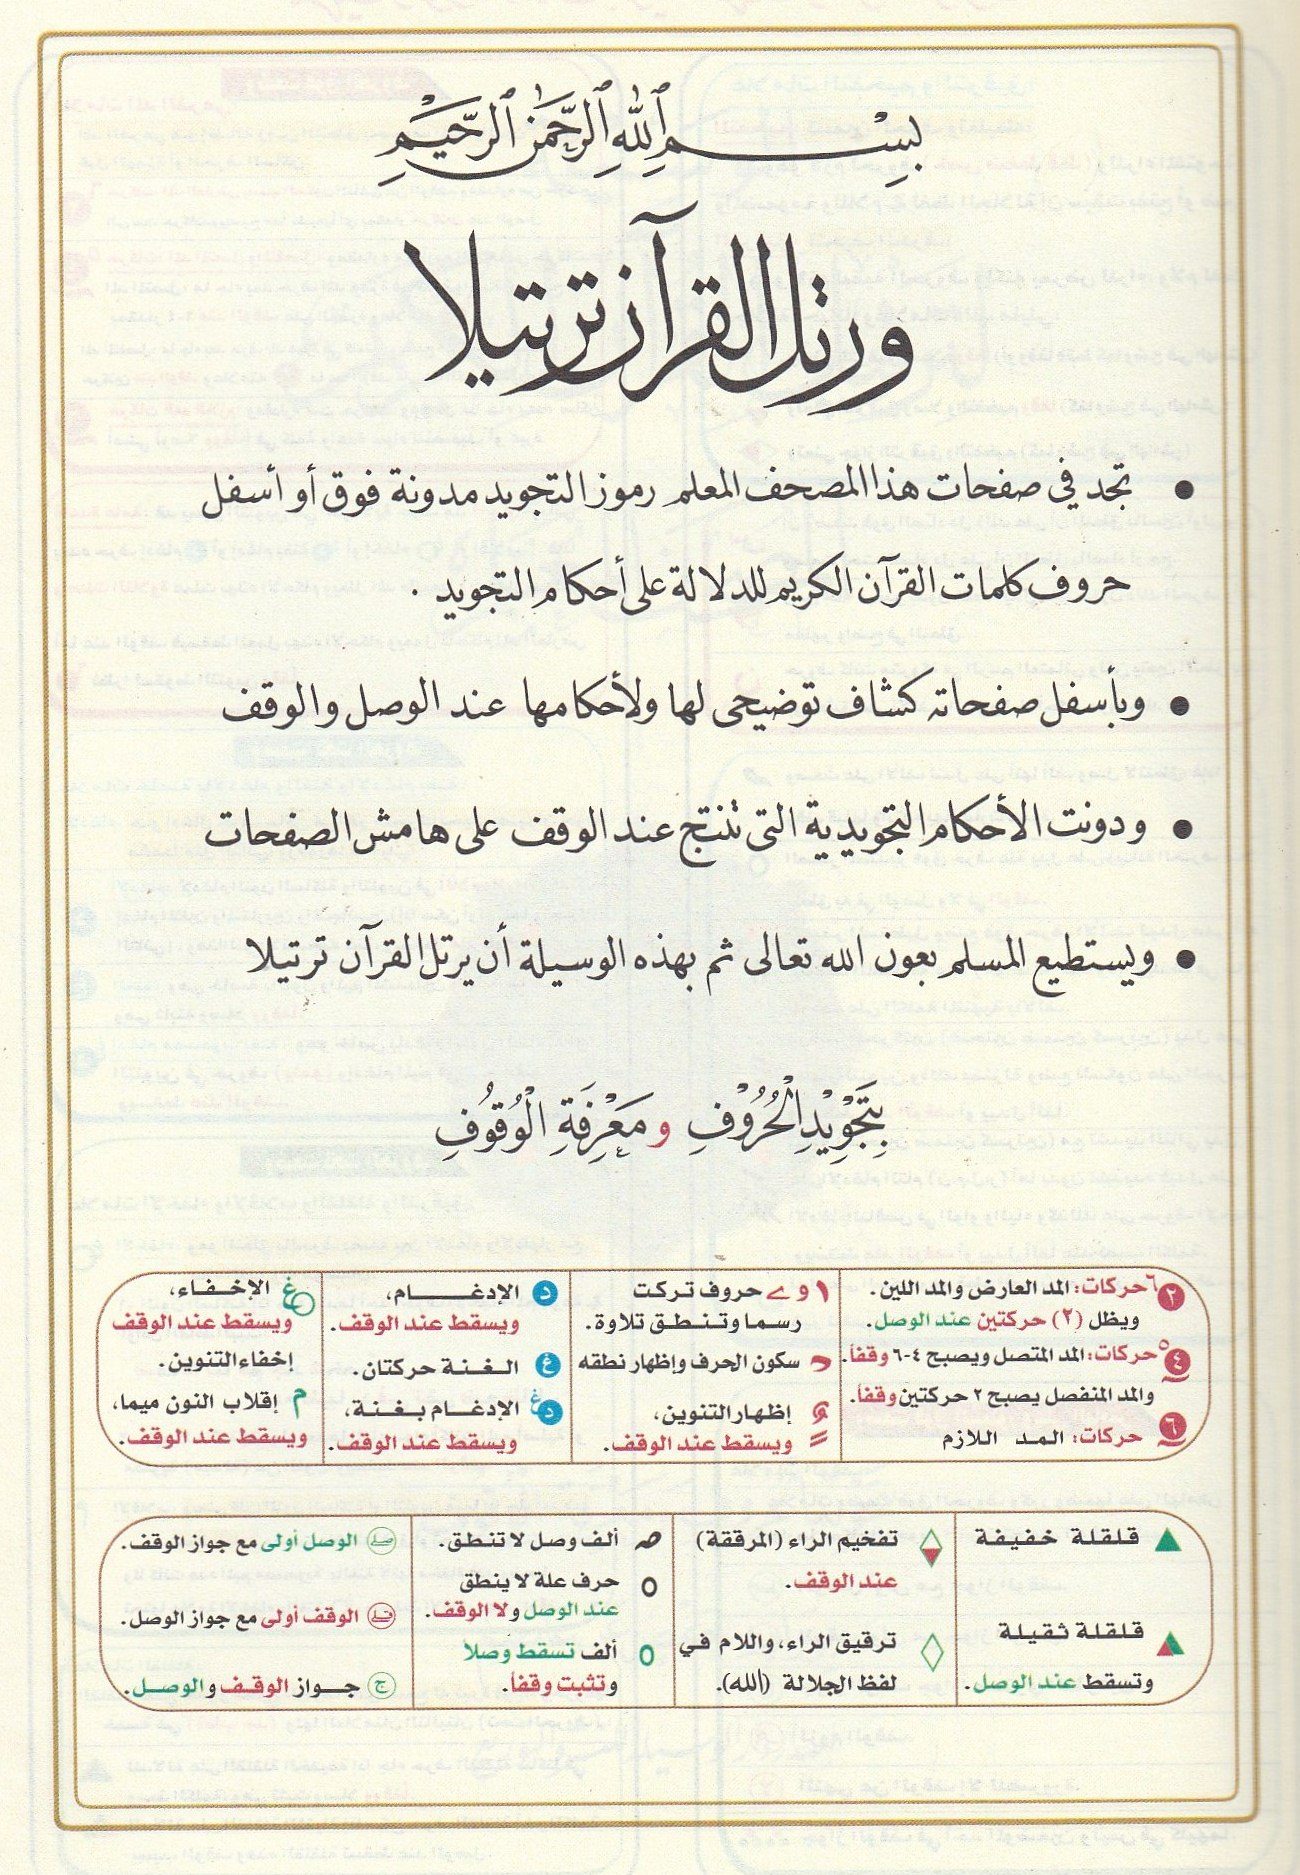 بِسْمِ ٱللَّهِ ٱلرَّحْمَٰنِ ٱلرَّحِيمِ
ورتل القرآن ترتيلا
• تجد في صفحات هذا المصحف المعلم رموز التجويد مدونة فوق أو أسفل
حروف كلمات القرآن الكريم للدلالة على أحكام التجويد .
• وبأسفل صفحاته كشاف توضيحى لها ولأحكامها عند الوصل والوقف
• ودونت الأحكام التجويدية التى تنتج عند الوقف على هامش الصفحات
• ويستطيع المسلم بعون الله تعالى ثم بهذه الوسيلة أن يرتل القرآن ترتيلا
بِتَجْوِيْدِ الْحُرُوْفِ و مَعْرِفَةِ الْوُقُوُفِ
٢ ٦ حركات: المد العارض والمد اللين.
ويظل (٢) حركتين عند الوصل.
٤ ٥ حركات: المد المتصل ويصبح ٤-٦ وقفاً.
والمد المنفصل يصبح ٢ حركتين وقفاً.
٦ حركات: المد اللازم
ا و ے حروف تركت
رسما وتنطق تلاوة.
سكون الحرف وإظهار نطقه
إظهار التنوين،
ويسقط عند الوقف.
د الإدغـــــام،
ويسقط عند الوقف.
غ الغنة حركتان.
د غ الإدغام بغنة،
ويسقط عند الوقف.
غ الإخفـاء،
ويسقط عند الوقف
إخفاء التنوين.
م إقلاب النون ميما،
ويسقط عند الوقف.
قلقلة خفيفة
قلقلة ثقيلة
وتسقط عند الوصل.
تفخيم الراء (المرققة)
عند الوقف.
ترقيق الراء، واللام في
لفظ الجلالة (الله).
ص ألف وصل لا تنطق.
حرف علة لا ينطق
عند الوصل ولا الوقف.
ألف تسقط وصلاً
وتثبت وقفاً.
صلے الوصل أولى مع جواز الوقف.
قلے الوقف أولى مع جواز الوصل.
ج جـــواز الوقـف والوصـل.